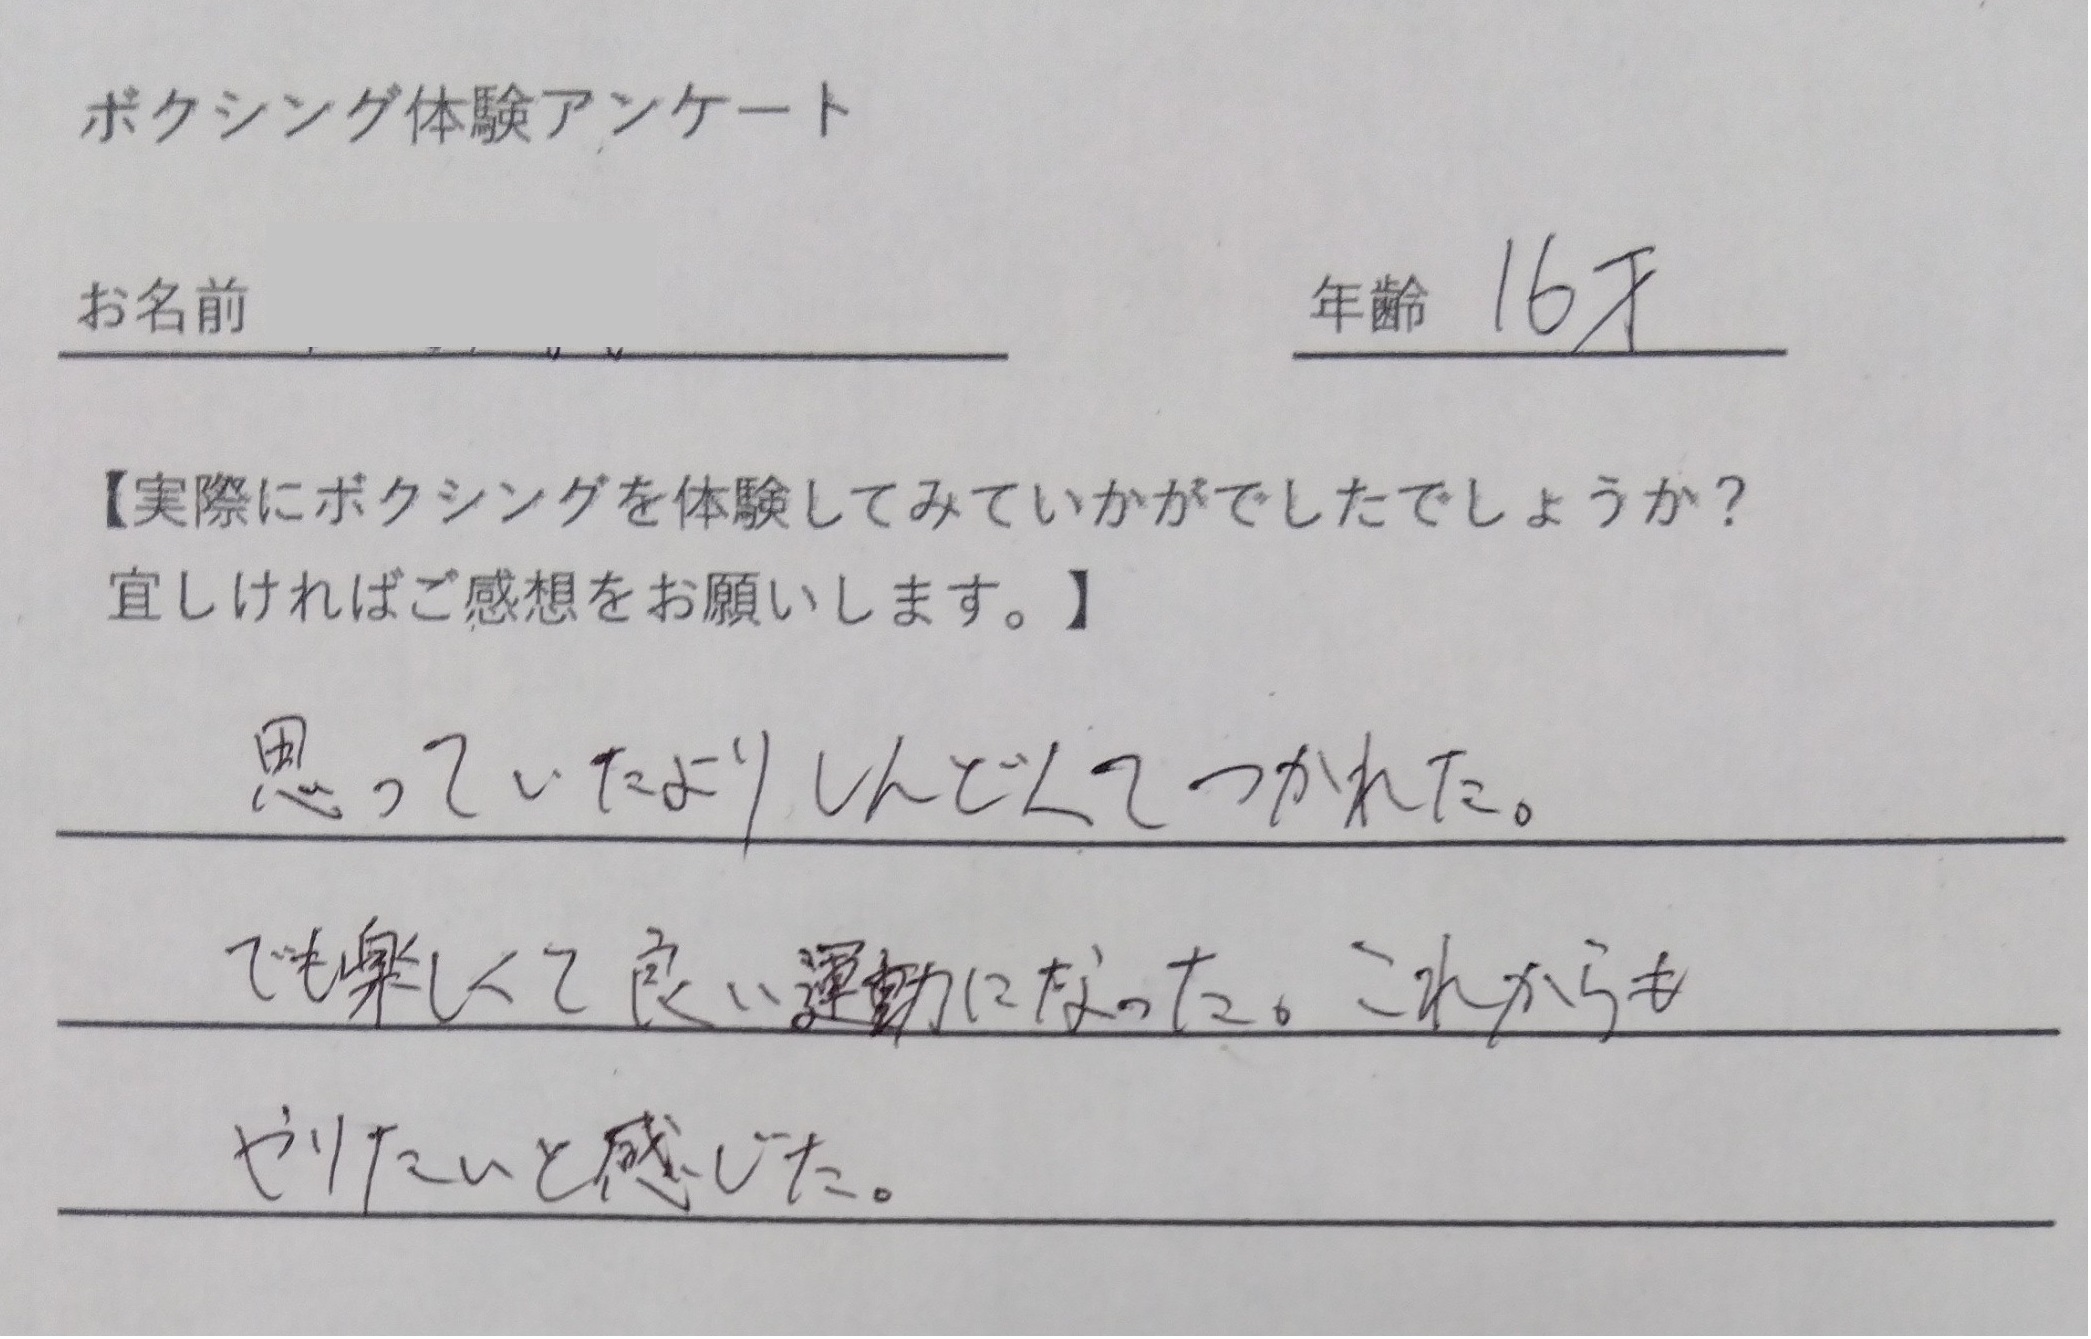 ボクシング体験アンケート
お名前
年齢 16才
【実際にボクシングを体験してみていかがでしたでしょうか?
宜しければご感想をお願いします。】
思っていたよりしんどくてつかれた。
でも楽しくて良い運動になった。これからも
やりたいと感じた。